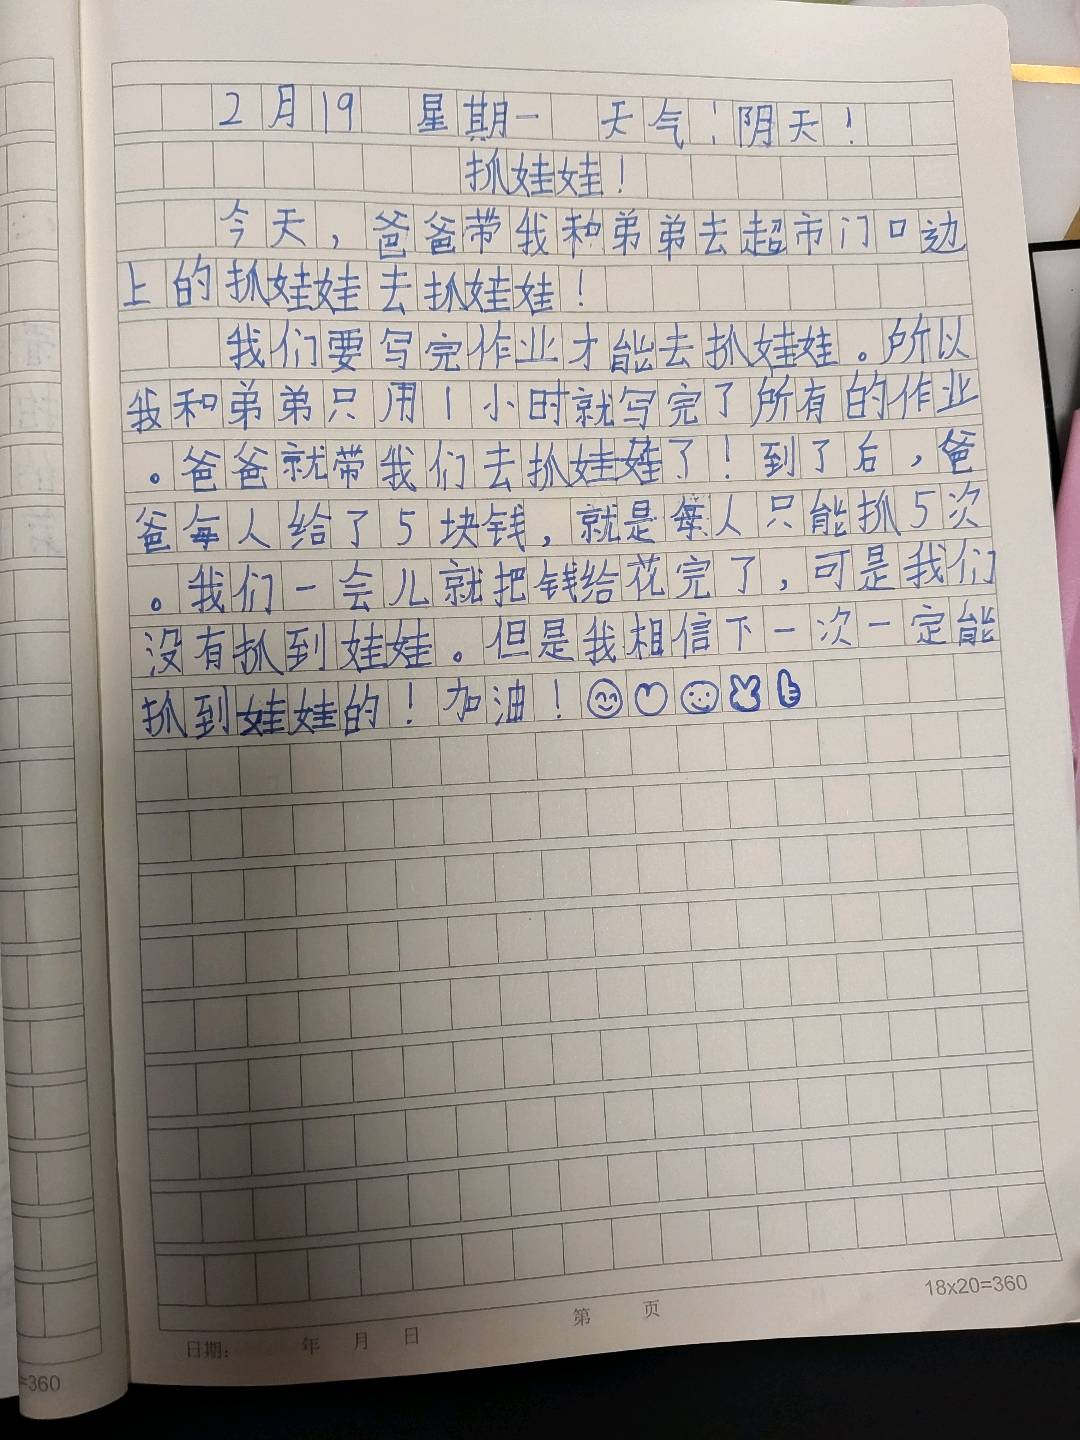 2月19 星期一 天气:阴天!
抓娃娃!
今天,爸爸带我和弟弟去超市门口边
上的抓娃娃去抓娃娃!
我们要写完作业才能去抓娃娃。所以
我和弟弟只用1小时就写完了所有的作业
。爸爸就带我们去抓娃娃了!到了后,爸
爸每人给了5块钱,就是每人只能抓5次
。我们一会儿就把钱给花完了,可是我们
没有抓到娃娃。但是我相信下一次一定能
抓到娃娃的!加油!
日期: 年 月 日
第 页
18x20=360
=360